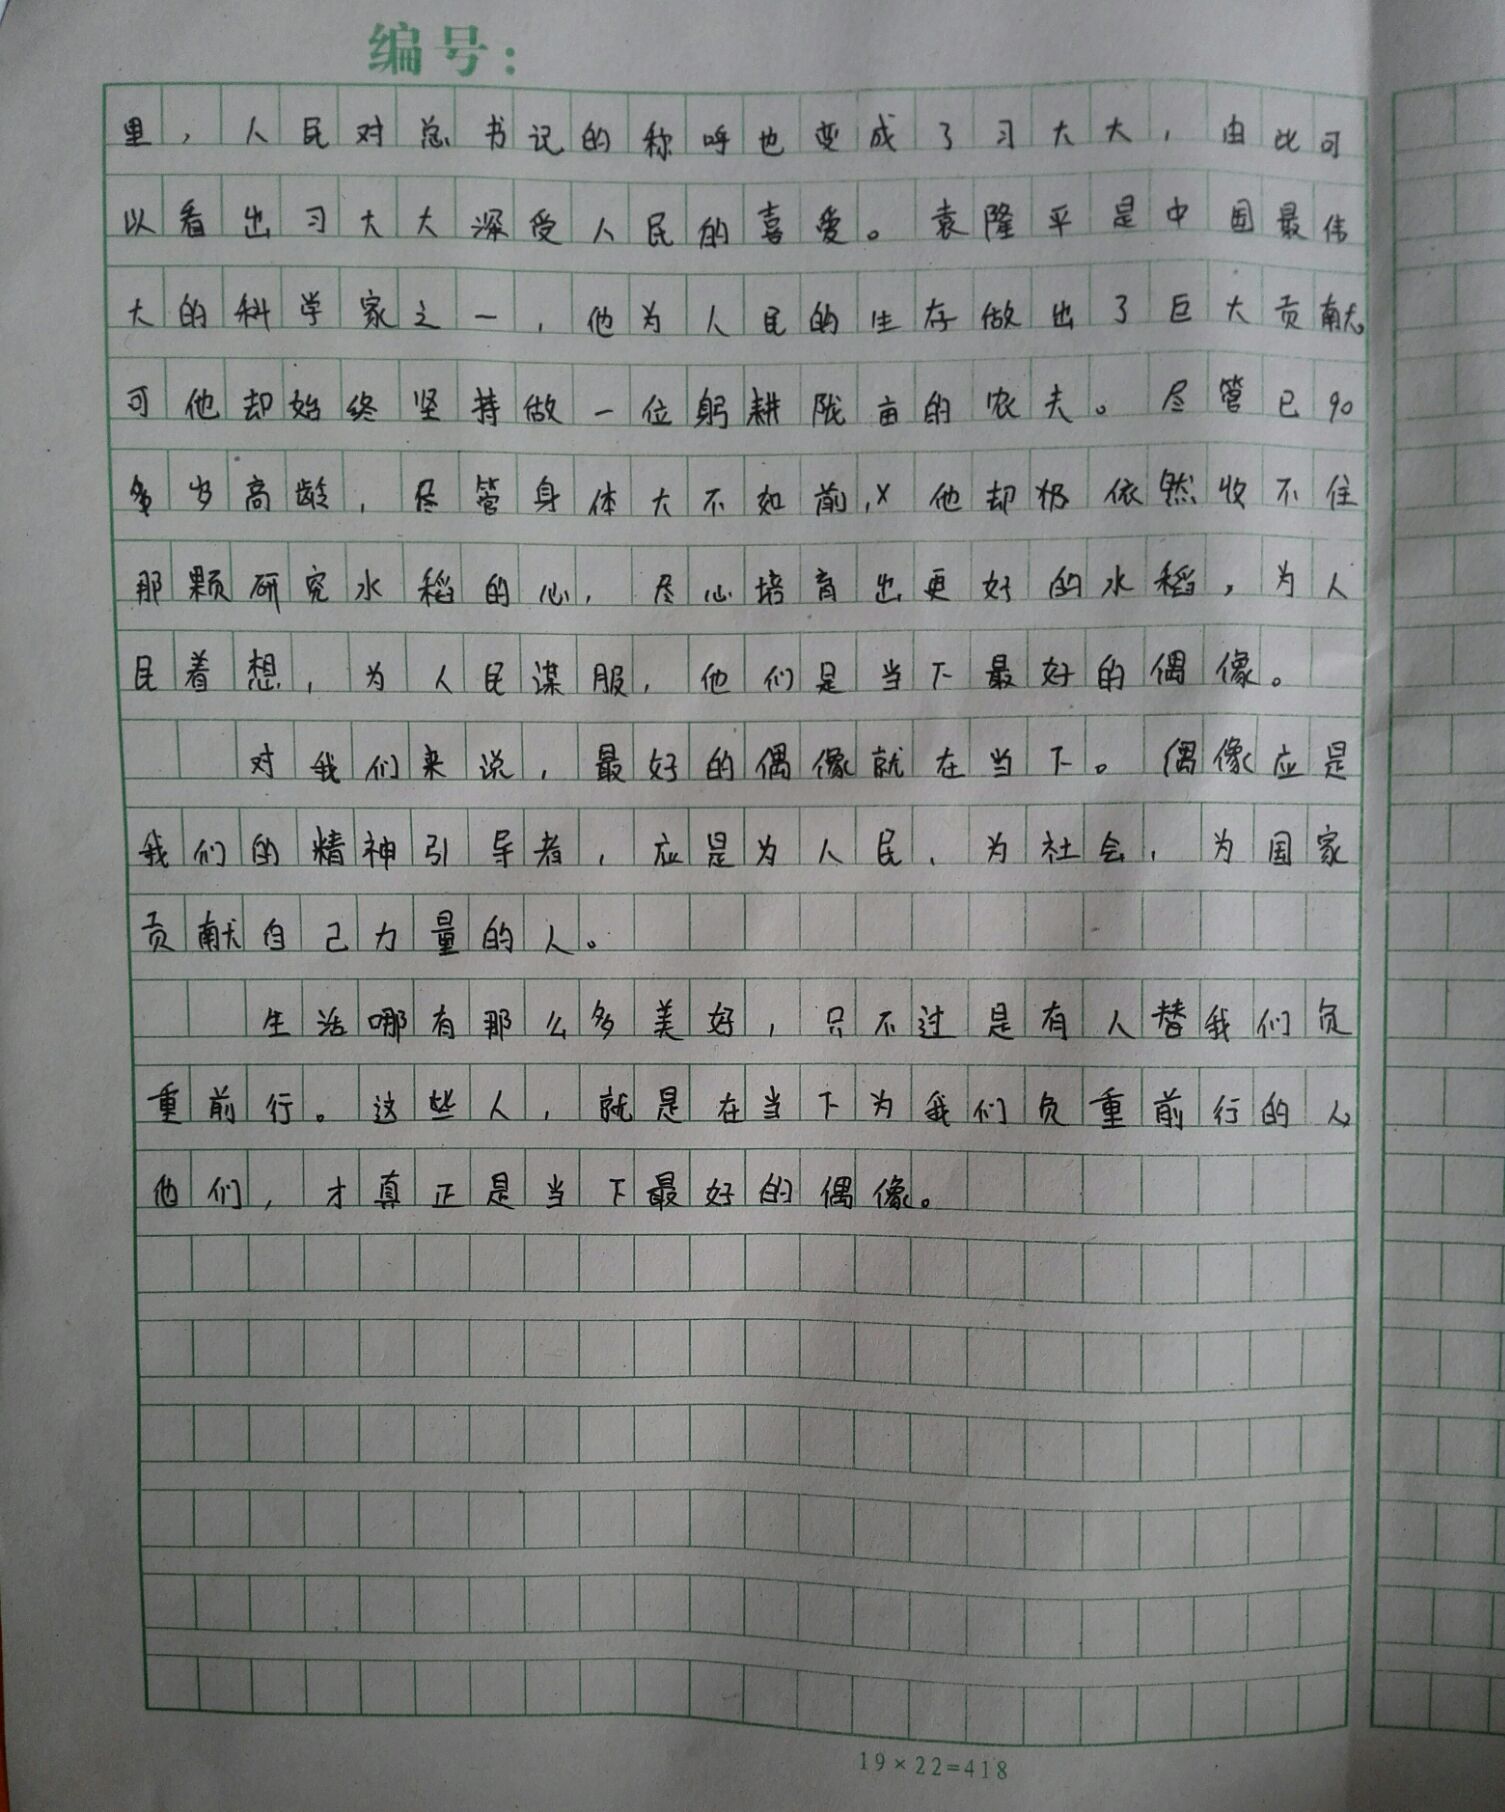 编号:
里，人民对总书记的称呼也变成了习大大，由此可
以看出习大大深受人民的喜爱。袁隆平是中国最伟
大的科学家之一，他为人民的生存做出了巨大贡献。
可他却始终坚持做一位躬耕陇亩的农夫。尽管已90
多岁高龄，尽管身体大不如前，x他却扔依然收不住
那颗研究水稻的心，尽心培育出更好的水稻，为人
民着想，为人民谋服，他们是当下最好的偶像。
对我们来说，最好的偶像就在当下。偶像应是
我们的精神引导者，应是为人民、为社会，为国家
贡献自己力量的人。
生活哪有那么多美好，只不过是有人替我们负
重前行。这些人，就是在当下为我们负重前行的人。
他们，才真正是当下最好的偶像。
19×22=418